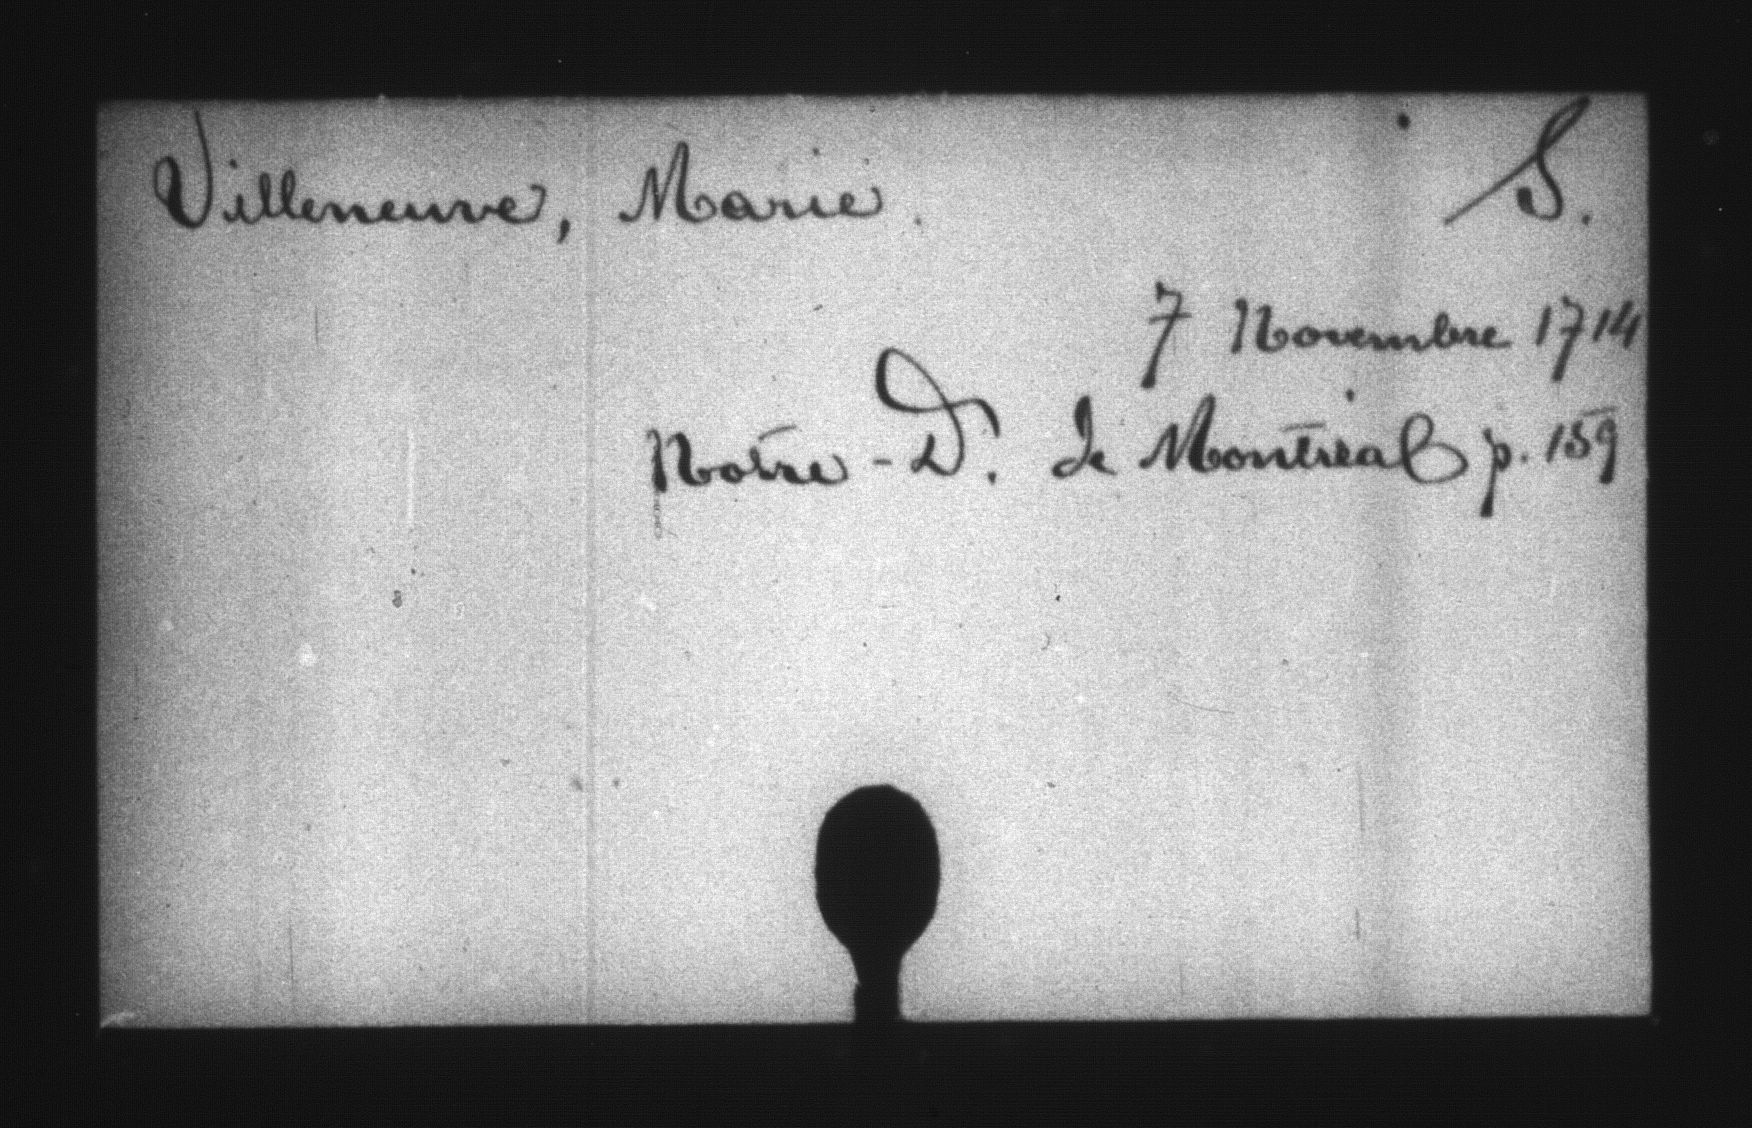 Villeneuve, Marie. S.
7 Novembre 1714
Notre-D. de Montréal p. 159